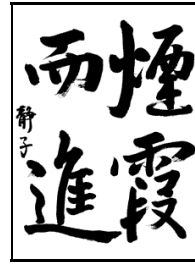 煙霞
而進
静子